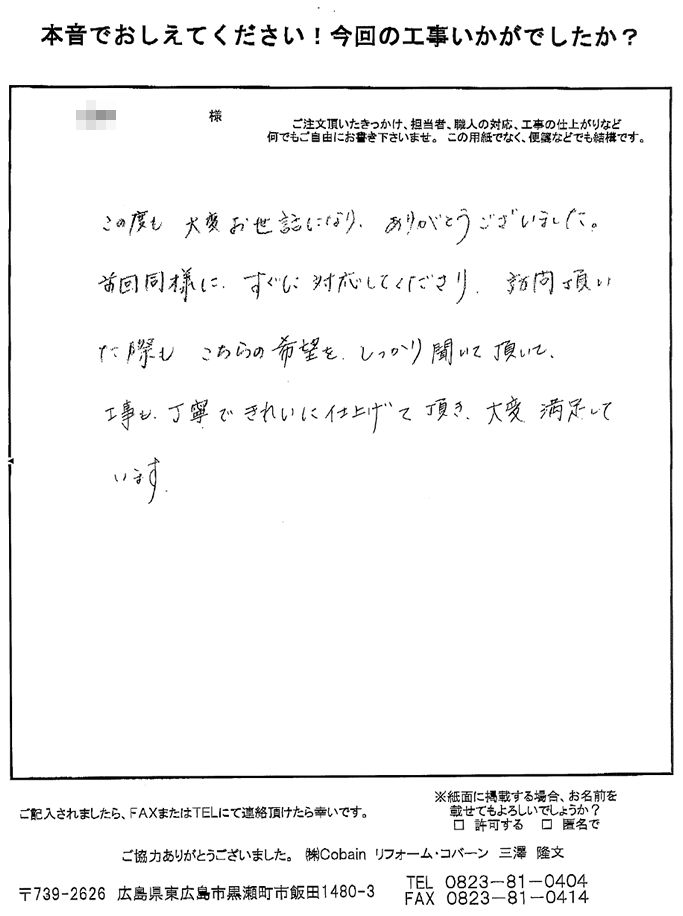 本音でおしえてください！今回の工事いかがでしたか？
様
ご注文頂いたきっかけ、担当者、職人の対応、工事の仕上がりなど
何でもご自由にお書き下さいませ。この用紙でなく、便箋などでも結構です。
この度も 大変お世話になり、ありがとうございました。
前回同様に、すぐに対応してくださり、訪問頂い
た際も こちらの希望を、しっかり聞いて頂いて、
工事も、丁寧できれいに仕上げて頂き、大変 満足して
います。
ご記入されましたら、FAXまたはTELにて連絡頂けたら幸いです。
※紙面に掲載する場合、お名前を
載せてもよろしいでしょうか？
□ 許可する □ 匿名で
ご協力ありがとうございました。㈱Cobain リフォーム・コバーン 三澤 隆文
〒739-2626 広島県東広島市黒瀬町市飯田1480-3
TEL 0823-81-0404
FAX 0823-81-0414